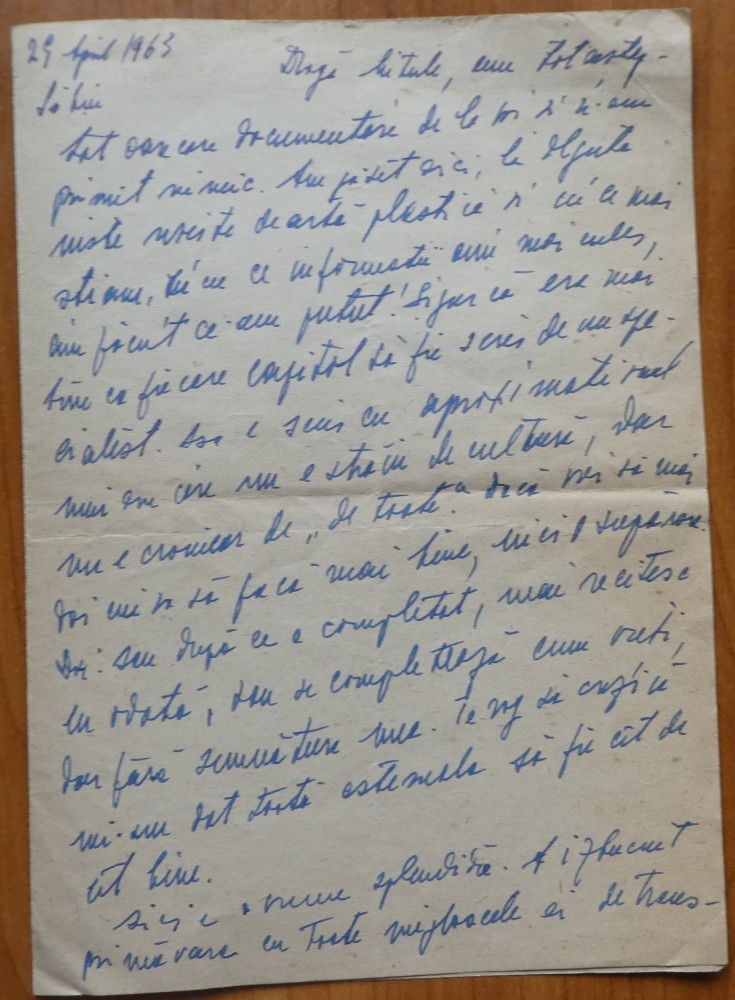 29 April 1963
Dragă Titule, am tot aștep-
Sibiu
tat oarecare documentare de la voi și n-am
primit nimic. Am găsit aici, la Olguța
niște reviste de artă plastică și cu ce mai
știam, cu ce informații am mai cules,
am făcut ce-am putut! Sigur că era mai
bine ca fiecare capitol să fie scris de un spe-
cialist. Așa e scris cu aproximativul
unui om care nu e străin de cultură, dar
nu e cronicar de „de toate". Dacă vrei să mai
dai cuiva să facă mai bine, nici o supărare.
Dar: sau după ce a completat, mai recitesc
eu odată, sau se completează cum vreți,
dar fără semnătura mea. Te rog să crezi că
mi-am dat toată osteneala să fie cît de
cît bine.
Aici e o vreme splendidă. A izbucnit
primăvara cu toate mijloacele ei de trans-